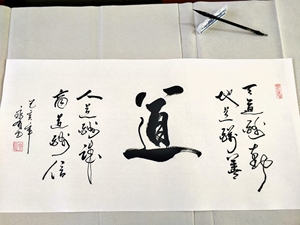 天道酬勤
地道酬善
道
人道酬诚
商道酬信
己亥年